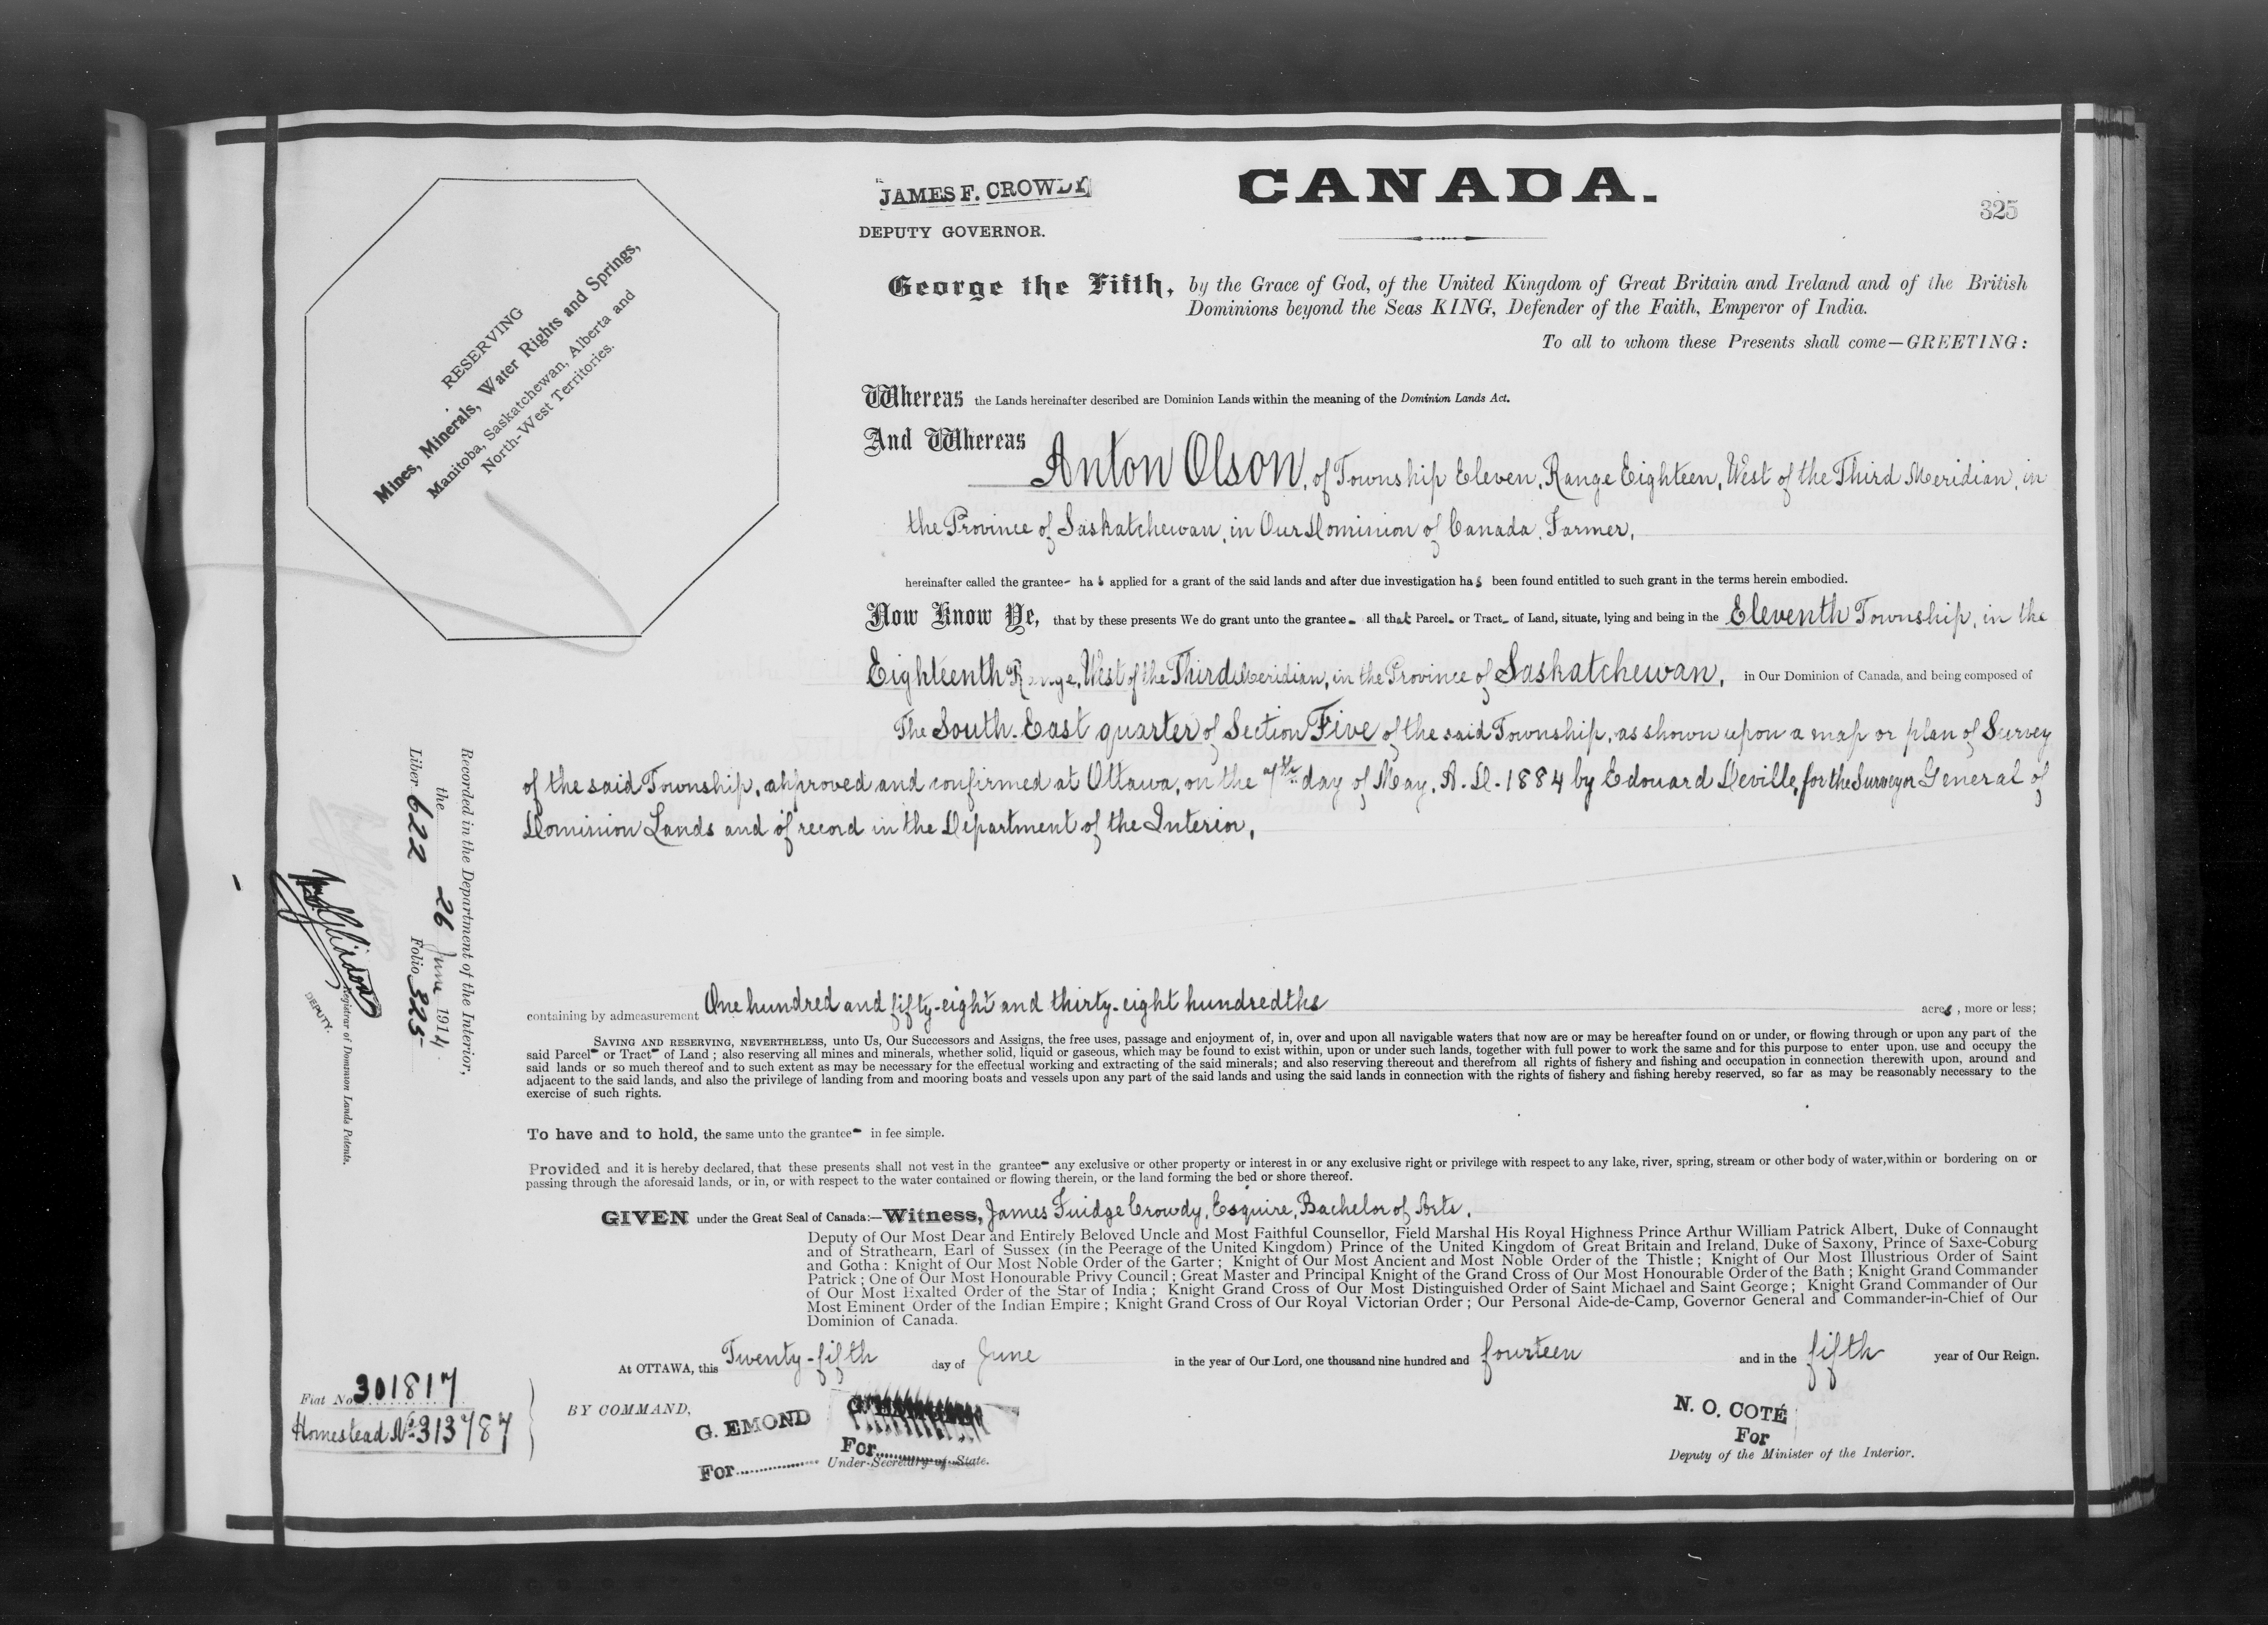 JAMES F. CROWDY
DEPUTY GOVERNOR.
CANADA.
325
George the Fifth, by the Grace of God, of the United Kingdom of Great Britain and Ireland and of the British
Dominions beyond the Seas KING, Defender of the Faith, Emperor of India.
To all to whom these Presents shall come—GREETING:
RESERVING
Mines, Minerals, Water Rights and Springs,
Manitoba, Saskatchewan, Alberta and
North-West Territories.
Whereas the Lands hereinafter described are Dominion Lands within the meaning of the Dominion Lands Act.
And Whereas
Anton Olson, of Township Eleven, Range Eighteen, West of the Third Meridian, in
the Province of Saskatchewan, in Our Dominion of Canada, Farmer,
hereinafter called the grantee- has applied for a grant of the said lands and after due investigation has been found entitled to such grant in the terms herein embodied.
Now Know Ye, that by these presents We do grant unto the grantee- all that Parcel- or Tract- of Land, situate, lying and being in the Eleventh Township, in the
Eighteenth Range, West of the Third Meridian, in the Province of Saskatchewan, in Our Dominion of Canada, and being composed of
The South-East quarter of Section Five of the said Township, as shown upon a map or plan of Survey
of the said Township, approved and confirmed at Ottawa, on the 7th day of May, A.D. 1884 by Edouard Deville, for the Surveyor General of
Dominion Lands and of record in the Department of the Interior,
containing by admeasurement One hundred and fifty-eight and thirty-eight hundredths acres, more or less;
SAVING AND RESERVING, NEVERTHELESS, unto Us, Our Successors and Assigns, the free uses, passage and enjoyment of, in, over and upon all navigable waters that now are or may be hereafter found on or under, or flowing through or upon any part of the
said Parcel- or Tract- of Land; also reserving all mines and minerals, whether solid, liquid or gaseous, which may be found to exist within, upon or under such lands, together with full power to work the same and for this purpose to enter upon, use and occupy the
said lands or so much thereof and to such extent as may be necessary for the effectual working and extracting of the said minerals; and also reserving thereout and therefrom all rights of fishery and fishing and occupation in connection therewith upon, around and
adjacent to the said lands, and also the privilege of landing from and mooring boats and vessels upon any part of the said lands and using the said lands in connection with the rights of fishery and fishing hereby reserved, so far as may be reasonably necessary to the
exercise of such rights.
To have and to hold, the same unto the grantee- in fee simple.
Provided and it is hereby declared, that these presents shall not vest in the grantee- any exclusive or other property or interest in or any exclusive right or privilege with respect to any lake, river, spring, stream or other body of water, within or bordering on or
passing through the aforesaid lands, or in, or with respect to the water contained or flowing therein, or the land forming the bed or shore thereof.
GIVEN under the Great Seal of Canada:—Witness, James Fuidge Crowdy, Esquire, Bachelor of Arts,
Deputy of Our Most Dear and Entirely Beloved Uncle and Most Faithful Counsellor, Field Marshal His Royal Highness Prince Arthur William Patrick Albert, Duke of Connaught
and of Strathearn, Earl of Sussex (in the Peerage of the United Kingdom) Prince of the United Kingdom of Great Britain and Ireland, Duke of Saxony, Prince of Saxe-Coburg
and Gotha: Knight of Our Most Noble Order of the Garter; Knight of Our Most Ancient and Most Noble Order of the Thistle; Knight of Our Most Illustrious Order of Saint
Patrick; One of Our Most Honourable Privy Council; Great Master and Principal Knight of the Grand Cross of Our Most Honourable Order of the Bath; Knight Grand Commander
of Our Most Exalted Order of the Star of India; Knight Grand Cross of Our Most Distinguished Order of Saint Michael and Saint George; Knight Grand Commander of Our
Most Eminent Order of the Indian Empire; Knight Grand Cross of Our Royal Victorian Order; Our Personal Aide-de-Camp, Governor General and Commander-in-Chief of Our
Dominion of Canada.
At OTTAWA, this Twenty-fifth day of June in the year of Our Lord, one thousand nine hundred and fourteen and in the fifth year of Our Reign.
BY COMMAND,
G. EMOND
For
For
Under-Secretary of State.
N. O. COTÉ
For
Deputy of the Minister of the Interior.
Recorded in the Department of the Interior,
the 26 June 1914.
Liber 622 Folio 325
Registrar of Dominion Lands Patents.
DEPUTY.
Fiat No 301817
Homestead No 313787